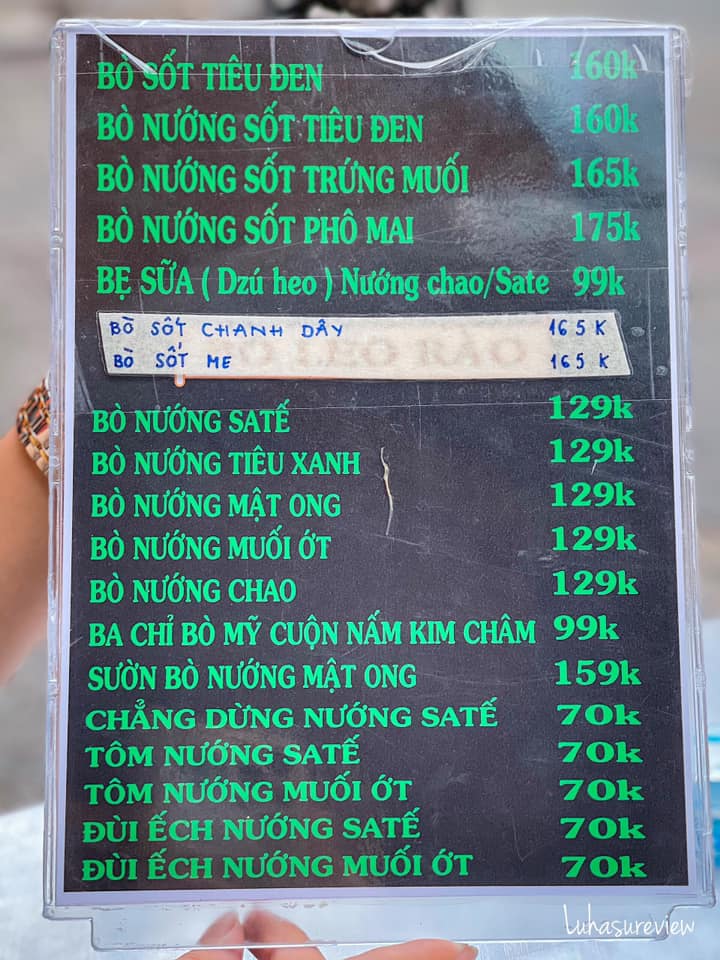 BÒ SỐT TIÊU ĐEN 160k
BÒ NƯỚNG SỐT TIÊU ĐEN 160k
BÒ NƯỚNG SỐT TRỨNG MUỐI 165k
BÒ NƯỚNG SỐT PHÔ MAI 175k
BẸ SỮA ( Dzú heo ) Nướng chao/Sate 99k
BÒ SỐT CHANH DÂY 165 K
BÒ SỐT ME 165 K
BÒ NƯỚNG SATẾ 129k
BÒ NƯỚNG TIÊU XANH 129k
BÒ NƯỚNG MẬT ONG 129k
BÒ NƯỚNG MUỐI ỚT 129k
BÒ NƯỚNG CHAO 129k
BA CHỈ BÒ MỸ CUỘN NẤM KIM CHÂM 99k
SƯỜN BÒ NƯỚNG MẬT ONG 159k
CHẲNG DỪNG NƯỚNG SATẾ 70k
TÔM NƯỚNG SATẾ 70k
TÔM NƯỚNG MUỐI ỚT 70k
ĐÙI ẾCH NƯỚNG SATẾ 70k
ĐÙI ẾCH NƯỚNG MUỐI ỚT 70k
Luhasureview